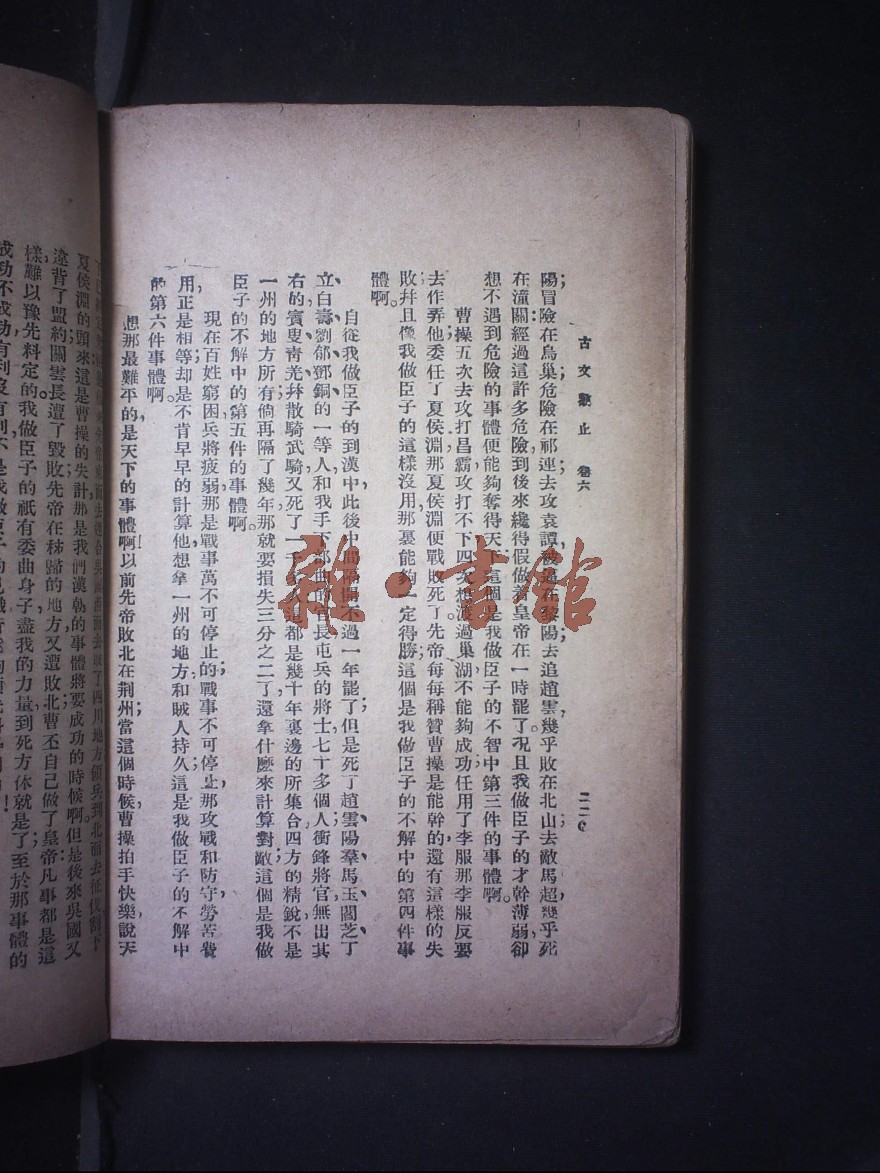 古文觀止 卷六
二二〇
陽；冒險在烏巢；危險在祁連；去攻袁譚，被逼在黎陽；去追趙雲，幾乎敗在北山；去敵馬超，幾乎死
在潼關；經過這許多危險，到後來纔得假做着皇帝在一時罷了。況且我做臣子的才幹薄弱，卻
想不遇到危險的事體，便能夠奪得天下，這個是我做臣子的不智中第三件的事體啊。
曹操五次去攻打昌霸，攻打不下；四次想渡過巢湖，不能夠成功；任用了李服，那李服反要
去作弄他；委任了夏侯淵，那夏侯淵便戰敗死了。先帝每每稱贊曹操是能幹的，還有這樣的失
敗；幷且像我做臣子的這樣沒用，那裏能夠一定得勝；這個是我做臣子的不解中的第四件事
體啊。
自從我做臣子的到漢中，此後中間隔開不過一年罷了；但是死了趙雲、陽羣、馬玉、閻芝、丁
立、白壽、劉郃、鄧銅的一等人，和我手下部曲的官長，屯兵的將士七十多個人；衝鋒將官無出其
右的賓叟、靑羌，幷散騎武騎，又死了一千多人；這都是幾十年裏邊的所集合四方的精銳，不是
一州的地方所有；倘再隔了幾年，那就要損失三分之二了，還拿什麽來計算對敵；這個是我做
臣子的不解中的第五件的事體啊。
現在百姓窮困，兵將疲弱；那是戰事萬不可停止的；戰事不可停止，那攻戰和防守，勞苦費
用，正是相等；却是不肯早早的計算他，想拿一州的地方，和賊人持久；這是我做臣子的不解中
的第六件事體啊。
想那最難平的，是天下的事體啊！以前先帝敗北在荆州，當這個時候，曹操拍手快樂，說天
夏侯淵的頭來；這是曹操的失計，那是我們漢朝的事體將要成功的時候啊。但是後來吳國又
違背了盟約，關雲長遭了毀敗，先帝在秭歸的地方又遭敗北，曹丕自己做了皇帝；凡事都是這
樣，難以豫先料定的。我做臣子的，祇有委曲身子，盡我的力量，到死方休就是了；至於那事體的